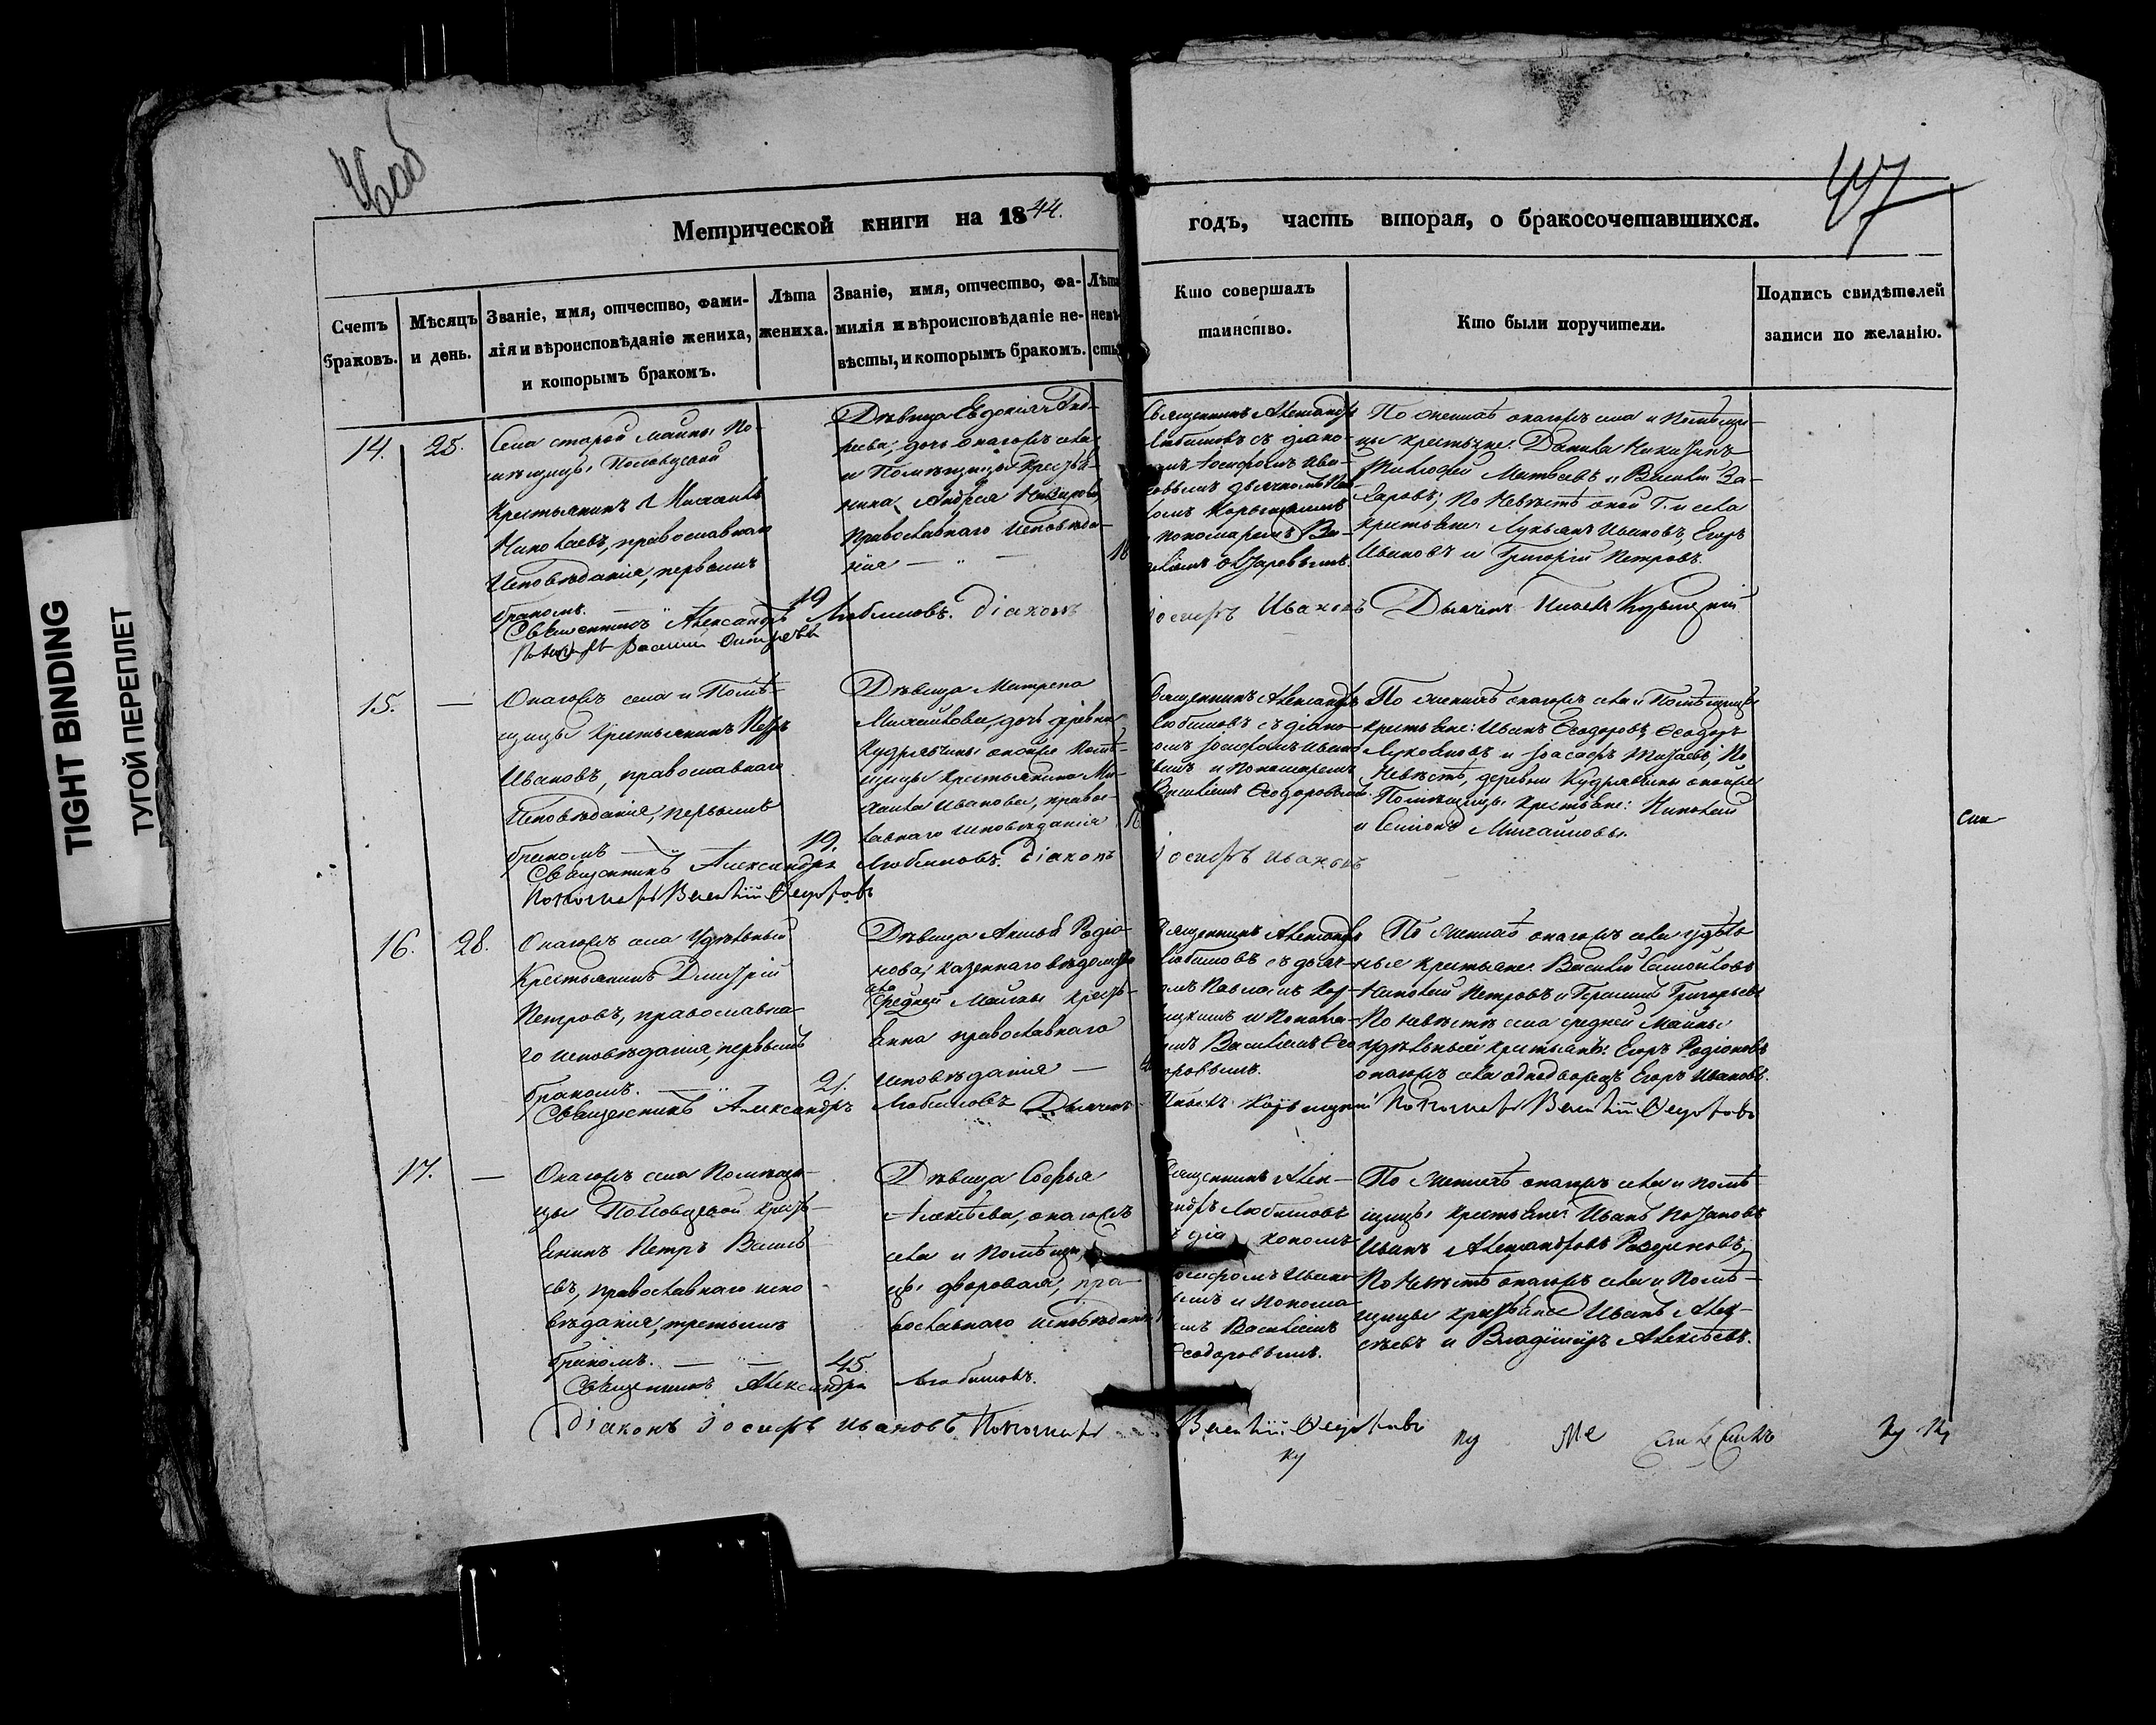 46об
47
Метрической книги на 1844. годъ, часть вторая, о бракосочетавшихся.
Счетъ браковъ.
Мѣсяцъ и день.
Званіе, имя, отчество, фами-
лія и вѣроисповѣданіе жениха,
и которымъ бракомъ.
Лѣта
жениха.
Званіе, имя, отчество, фа-
милія и вѣроисповѣданіе не-
вѣсты, и которымъ бракомъ.
Лѣта
невѣ-
сты
Кто совершалъ
таинство.
Кто были поручители.
Подпись свидѣтелей
записи по желанію.
TIGHT BINDING
ТУГОЙ ПЕРЕПЛЕТ
14.
25.
Села старой Майны По-
мѣщицы
Крестьянинъ Михаилъ
Николаевъ, православнаго
Исповѣданія, первымъ
бракомъ.
19
Дѣвица Евдокія Анд-
реева, дочь онагожъ села
и Помѣщицы Крестья-
нина Андрея
Православнаго Исповѣда-
нія
18
Священникъ Александръ
Любимовъ съ діако-
номъ Іосифомъ Ива-
новымъ дьячкомъ Пав-
ломъ
пономаремъ Ва-
силіемъ Ѳедоровымъ.
По женихѣ онагожъ села и Помѣщи-
цы крестьяне: Данила Никитинъ
Матвѣевъ и Василій За-
харовъ; По Невѣстѣ оной Г. и села
крестьяне: Лукьянъ Ивановъ, Егоръ
Ивановъ и Григорій Петровъ.
Священникъ Александръ Любимовъ. Діаконъ Іосифъ Ивановъ Дьячекъ Павелъ
Василій
15.
—
Онагожъ села и Помѣ-
щицы Крестьянинъ Петръ
Ивановъ, православнаго
Исповѣданія, первымъ
бракомъ
19.
Дѣвица Матрена
Михайлова, дочь деревни
Кудрявчины онойже Помѣ-
щицы Крестьянина Ми-
хаила Иванова, право-
славнаго исповѣданія
Священникъ Александръ
Любимовъ съ діако-
номъ Іосифомъ Ивано-
вымъ и Пономаремъ
Василіемъ Ѳеодоровымъ.
По женихѣ онагожъ села и Помѣщицы
крестьяне: Иванъ Ѳеодоровъ, Ѳеодоръ
Лукьяновъ и Іоасафъ; По
Невѣстѣ, деревни Кудрявчины онойже
Помѣщицы крестьяне: Николай
и Семіонъ Михайловы.
Священникъ Александръ Любимовъ. Діаконъ Іосифъ Ивановъ
Пономарь Василій Ѳедоровъ
16.
28.
Онагожъ села Удѣльный
Крестьянинъ Дмитрій
Петровъ, православна-
го исповѣданія, первымъ
бракомъ.
21.
Дѣвица Радіо-
нова, казеннаго вѣдомства
села
Средней Майны крестья-
янка православнаго
исповѣданія —
Священникъ Александръ
Любимовъ съ дьяч-
комъ Павломъ
и Понома-
ремъ Василіемъ Ѳео-
доровымъ.
По женихѣ онагожъ села удѣль-
ные крестьяне: Василій Самойловъ
Николай Петровъ и Герасимъ Григорьевъ
По невѣстѣ села средней Майны
удѣльный крестьянъ: Егоръ Радіоновъ
онагожъ села однодворецъ Егоръ Ивановъ.
Священникъ Александръ Любимовъ Дьячекъ Павелъ Пономарь Василій Ѳедоровъ
17.
—
Онагожъ села Помѣщи-
цы кресть-
янинъ Петръ Василь-
евъ, православнаго испо-
вѣданія, третьимъ
бракомъ. —
45
Дѣвица Софья
Алексѣева, онагожъ
села и Помѣщи-
цы дворовая, пра-
вославнаго исповѣданія
Священникъ Алек-
сандръ Любимовъ
съ діакономъ
Іосифомъ Ивано-
вымъ и Понома-
ремъ Василіемъ
Ѳеодоровымъ.
По женихѣ онагожъ села и помѣ-
щицы крестьяне: Иванъ
Иванъ Александровъ
По Невѣстѣ онагожъ села и Помѣ-
щицы крестьяне Иванъ Алек-
сѣевъ и Владиміръ Алексѣевъ.
Священникъ Александръ Любимовъ.
Діаконъ Іосифъ Ивановъ Пономарь Василій Ѳедоровъ